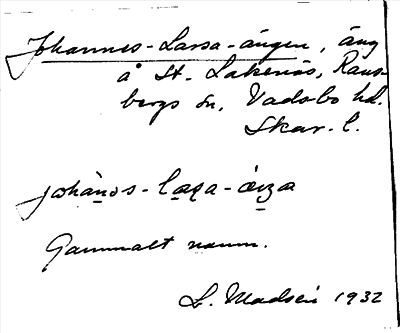 Johannes-Lassa-ängen, äng
å St. Lakenäs, Rans-
bergs sn, Vadsbo hd.
Skar. l.
johànəs-lasa-
Gammalt namn.
L. Madsén 1932